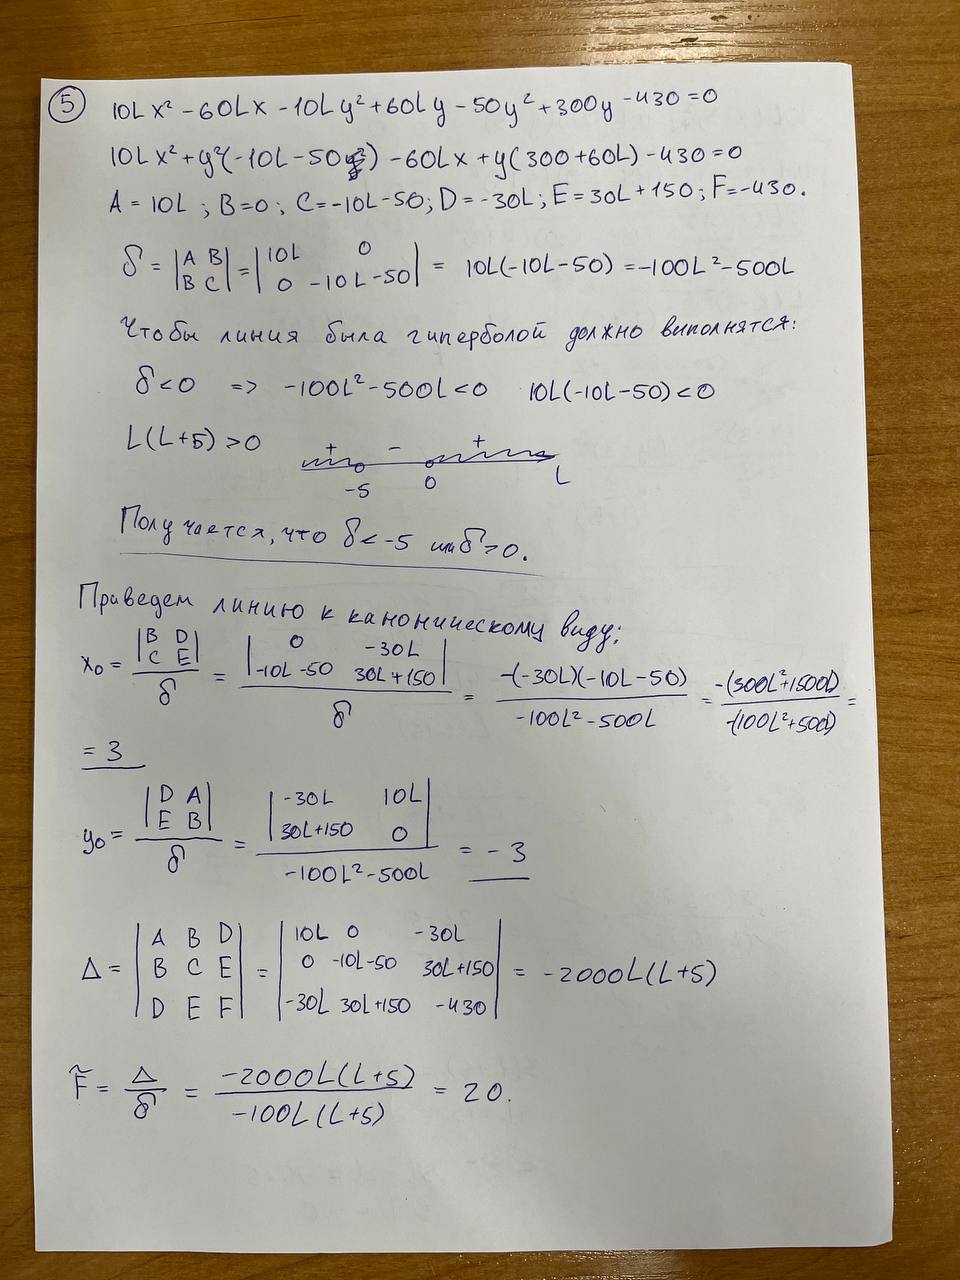 5
10L x² - 60Lx - 10Ly² + 60Ly - 50y² + 300y - 430 = 0
10Lx² + y²(-10L - 50) - 60Lx + y(300 + 60L) - 430 = 0
A = 10L ; B = 0 ; C = -10L - 50 ; D = -30L ; E = 30L + 150 ; F = -430.
δ = |A B; B C| = |10L 0; 0 -10L -50| = 10L(-10L - 50) = -100L² - 500L
Чтобы линия была гиперболой должно виполнятся:
δ < 0 => -100L² - 500L < 0 10L(-10L - 50) < 0
L(L+5) > 0 + - + -5 0 L
Получается, что δ < -5 или δ > 0.
Приведем линию к каноническому виду:
x₀ = |B D; C E| / δ = |0 -30L; -10L -50 30L + 150| / δ = -(-30L)(-10L - 50) / -100L² - 500L = -(300L² + 1500L) / -(100L² + 500L) =
= 3
y₀ = |D A; E B| / δ = |-30L 10L; 30L + 150 0| / -100L² - 500L = - 3
Δ = |A B D; B C E; D E F| = |10L 0 -30L; 0 -10L - 50 30L + 150; -30L 30L + 150 -430| = -2000L(L+5)
F̃ = Δ / δ = -2000L(L+5) / -100L(L+5) = 20.